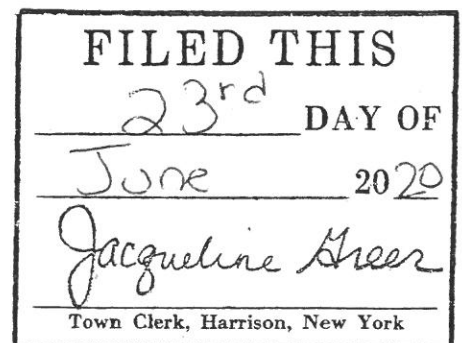 FILED THIS
23rd DAY OF
June 2020
Jacqueline Greer
Town Clerk, Harrison, New York